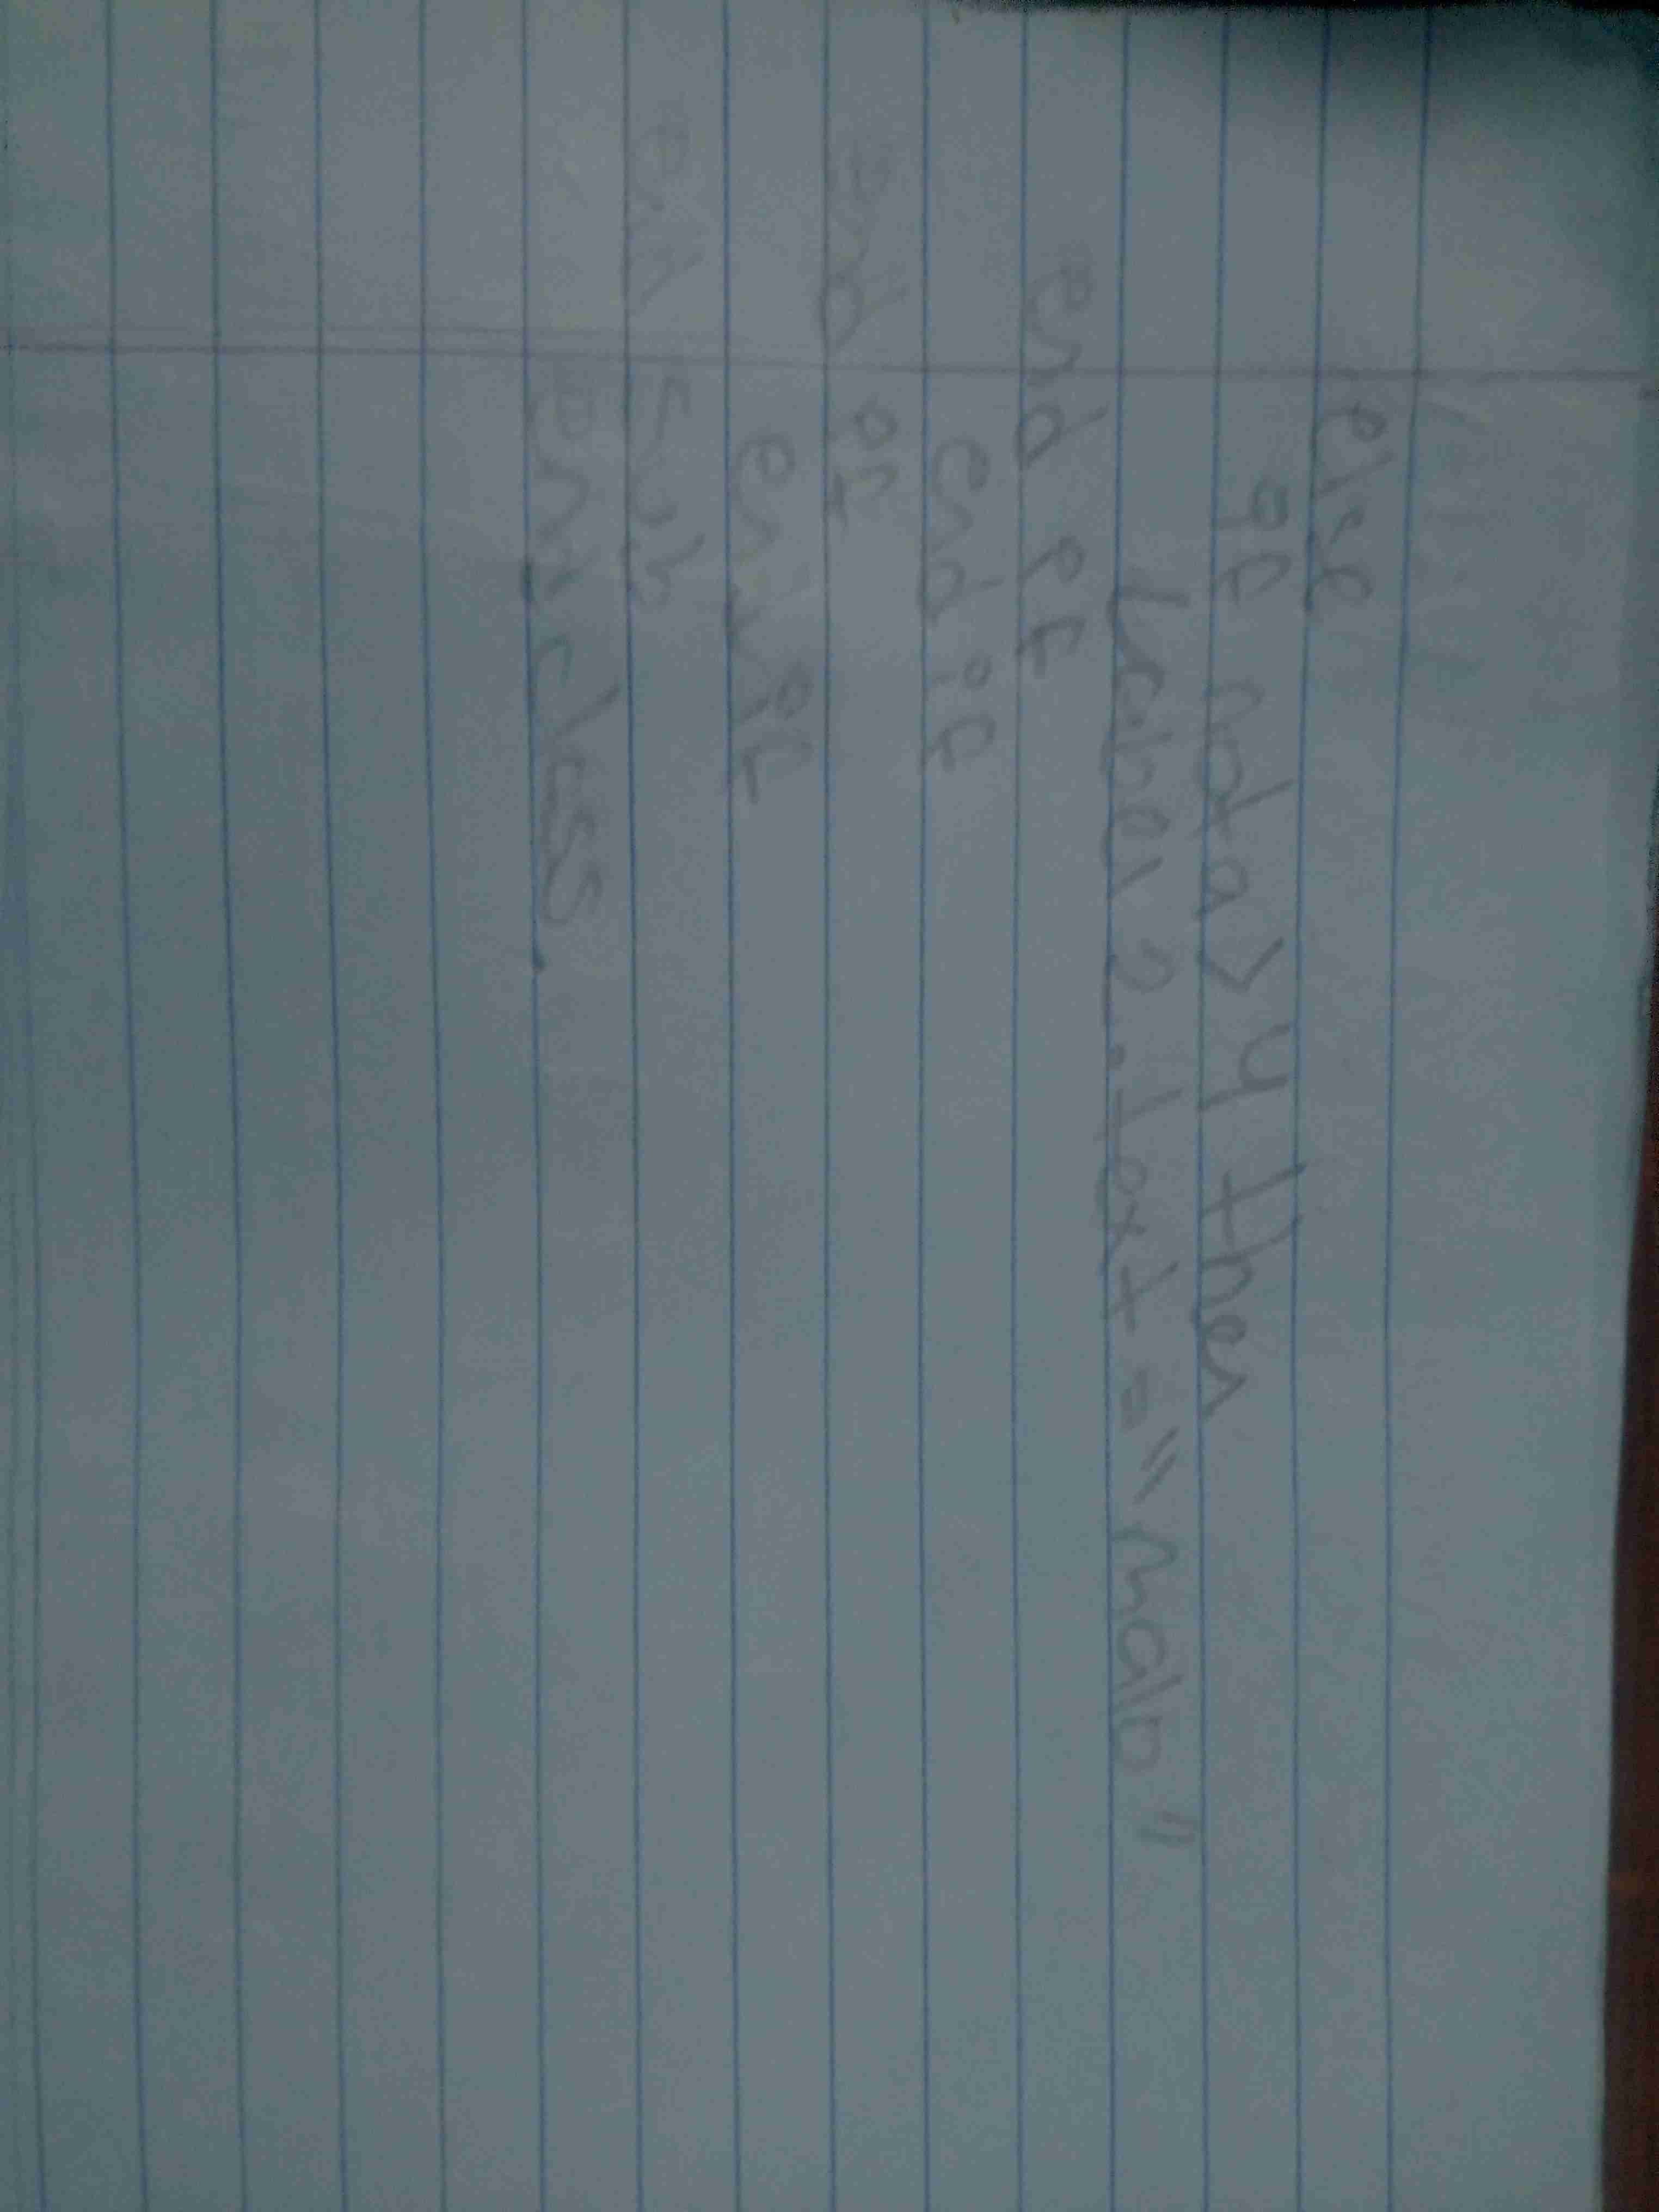 else
if nota > 4 then
Label 2 . text = " malo "
end if
end if
end if
end if
end sub
end class.